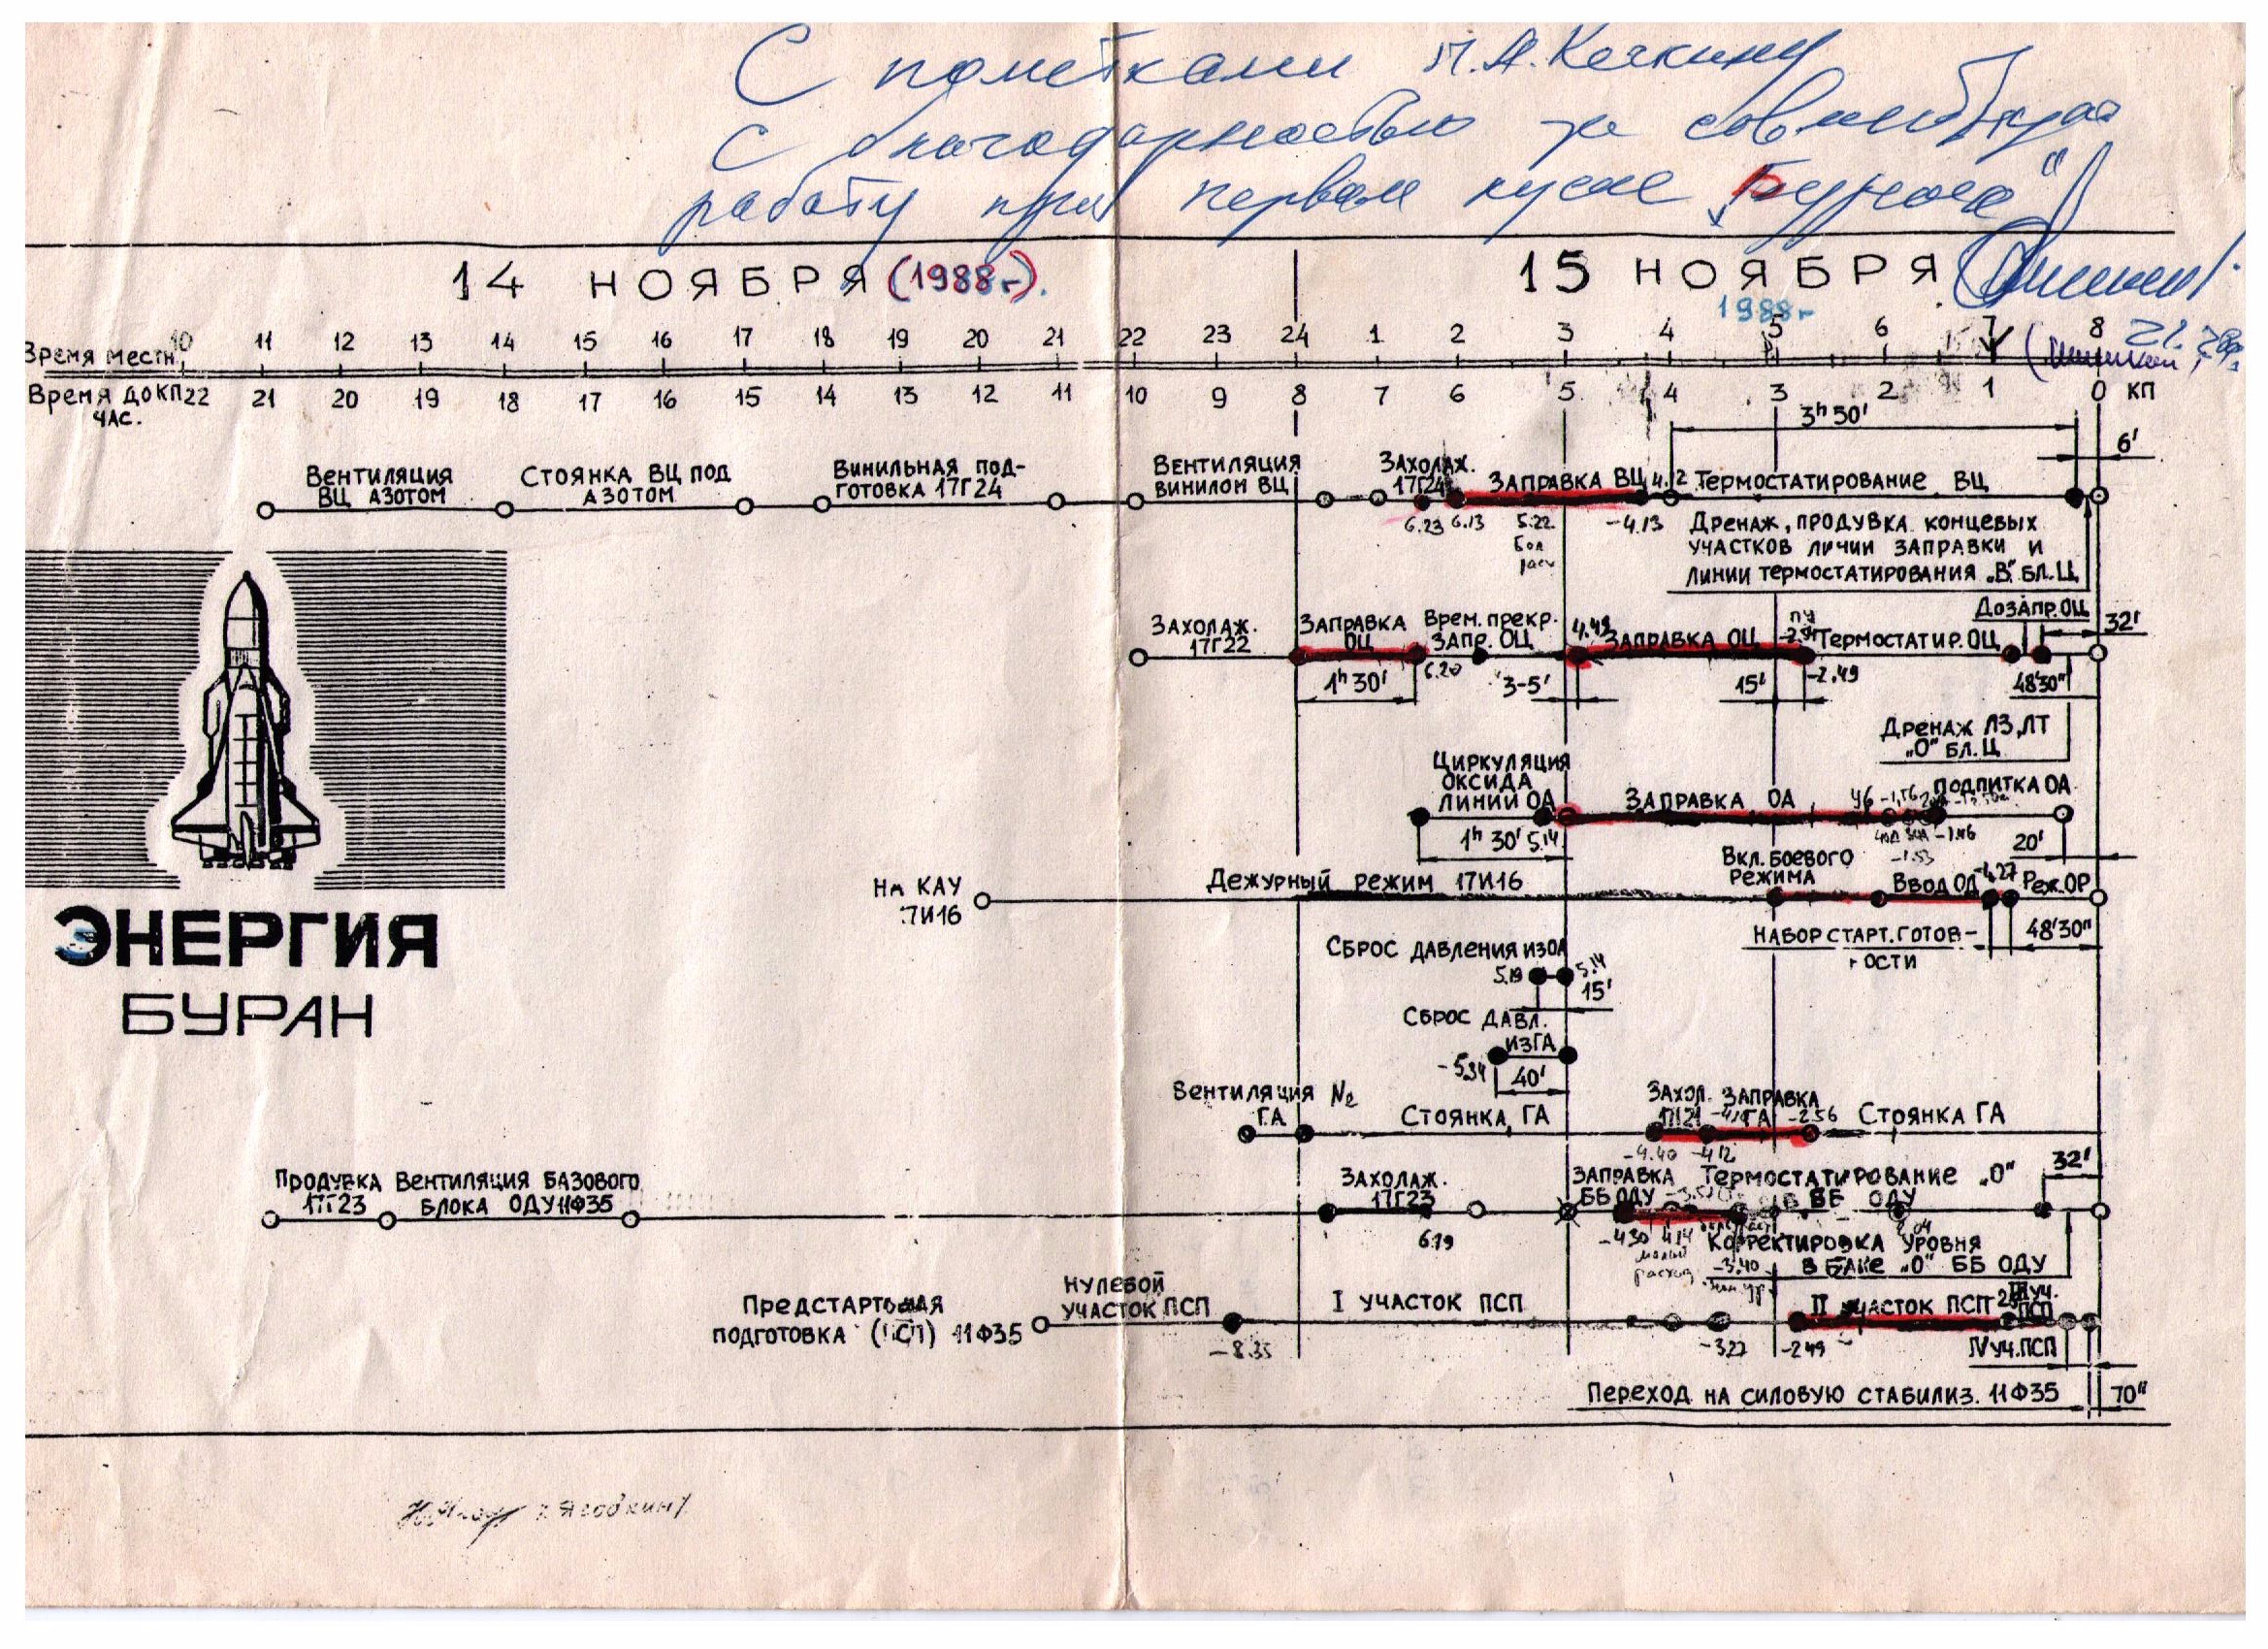 С пометками
С благодарностью за совместную
работу при первом пуске „Бурана"
14 НОЯБРЯ (1988г).
15 НОЯБРЯ
1988г
10 11 12 13 14 15 16 17 18 19 20 21 22 23 24 1 2 3 4 5 6 7 8
Время местн.
Время до КП 22 21 20 19 18 17 16 15 14 13 12 11 10 9 8 7 6 5 4 3 2 1 0 КП
ЧАС.
3ʰ 50'
6'
Вентиляция
ВЦ азотом
Стоянка ВЦ под
азотом
Винильная под-
готовка 17Г24
Вентиляция
винилом ВЦ
Захолаж.
17Г24
Заправка ВЦ
4.12
Термостатирование ВЦ
6.23 6.13 5.22 -4.13
Дренаж, продувка концевых
участков линии заправки и
линии термостатирования „В" бл.Ц
Захолаж.
17Г22
Заправка
ОЦ
Врем. прекр.
запр. ОЦ
4.49
Заправка ОЦ
Термостатир. ОЦ
Дозапр. ОЦ
32'
1ʰ 30'
6.20
3-5'
15'
-2.49
48'30"
Дренаж ЛЗ, ЛТ
„О" бл. Ц
Циркуляция
оксида
линии ОА
Заправка ОА
Подпитка ОА
1ʰ 30' 5.14
-1.46
-1.53
20'
На КАУ
17И16
Дежурный режим 17И16
Вкл. боевого
режима
Ввод ОД
-1,27
Реж. ОР
Набор старт. готов-
ности
48'30"
Сброс давления из ОА
5.19
5.14
15'
Сброс давл.
из ГА
-5.34
40'
Вентиляция N₂
ГА
Стоянка ГА
Захол.
17Г21
Заправка
ГА
-2.56
Стоянка ГА
-4.40 -4.12
Продувка
17Г23
Вентиляция базового
блока ОДУ 11Ф35
Захолаж.
17Г23
6.19
Заправка
ББ ОДУ
Термостатирование „О"
в ББ ОДУ
32'
-4.30 4.14
малый
расход
-3.40
Корректировка уровня
в баке „О" ББ ОДУ
Предстартовая
подготовка (ПСП) 11Ф35
Нулевой
участок ПСП
I участок ПСП
II участок ПСП
III уч.
ПСП
-8.35
-3.27
-2.49
IV уч. ПСП
Переход на силовую стабилиз. 11Ф35
70"
ЭНЕРГИЯ
БУРАН